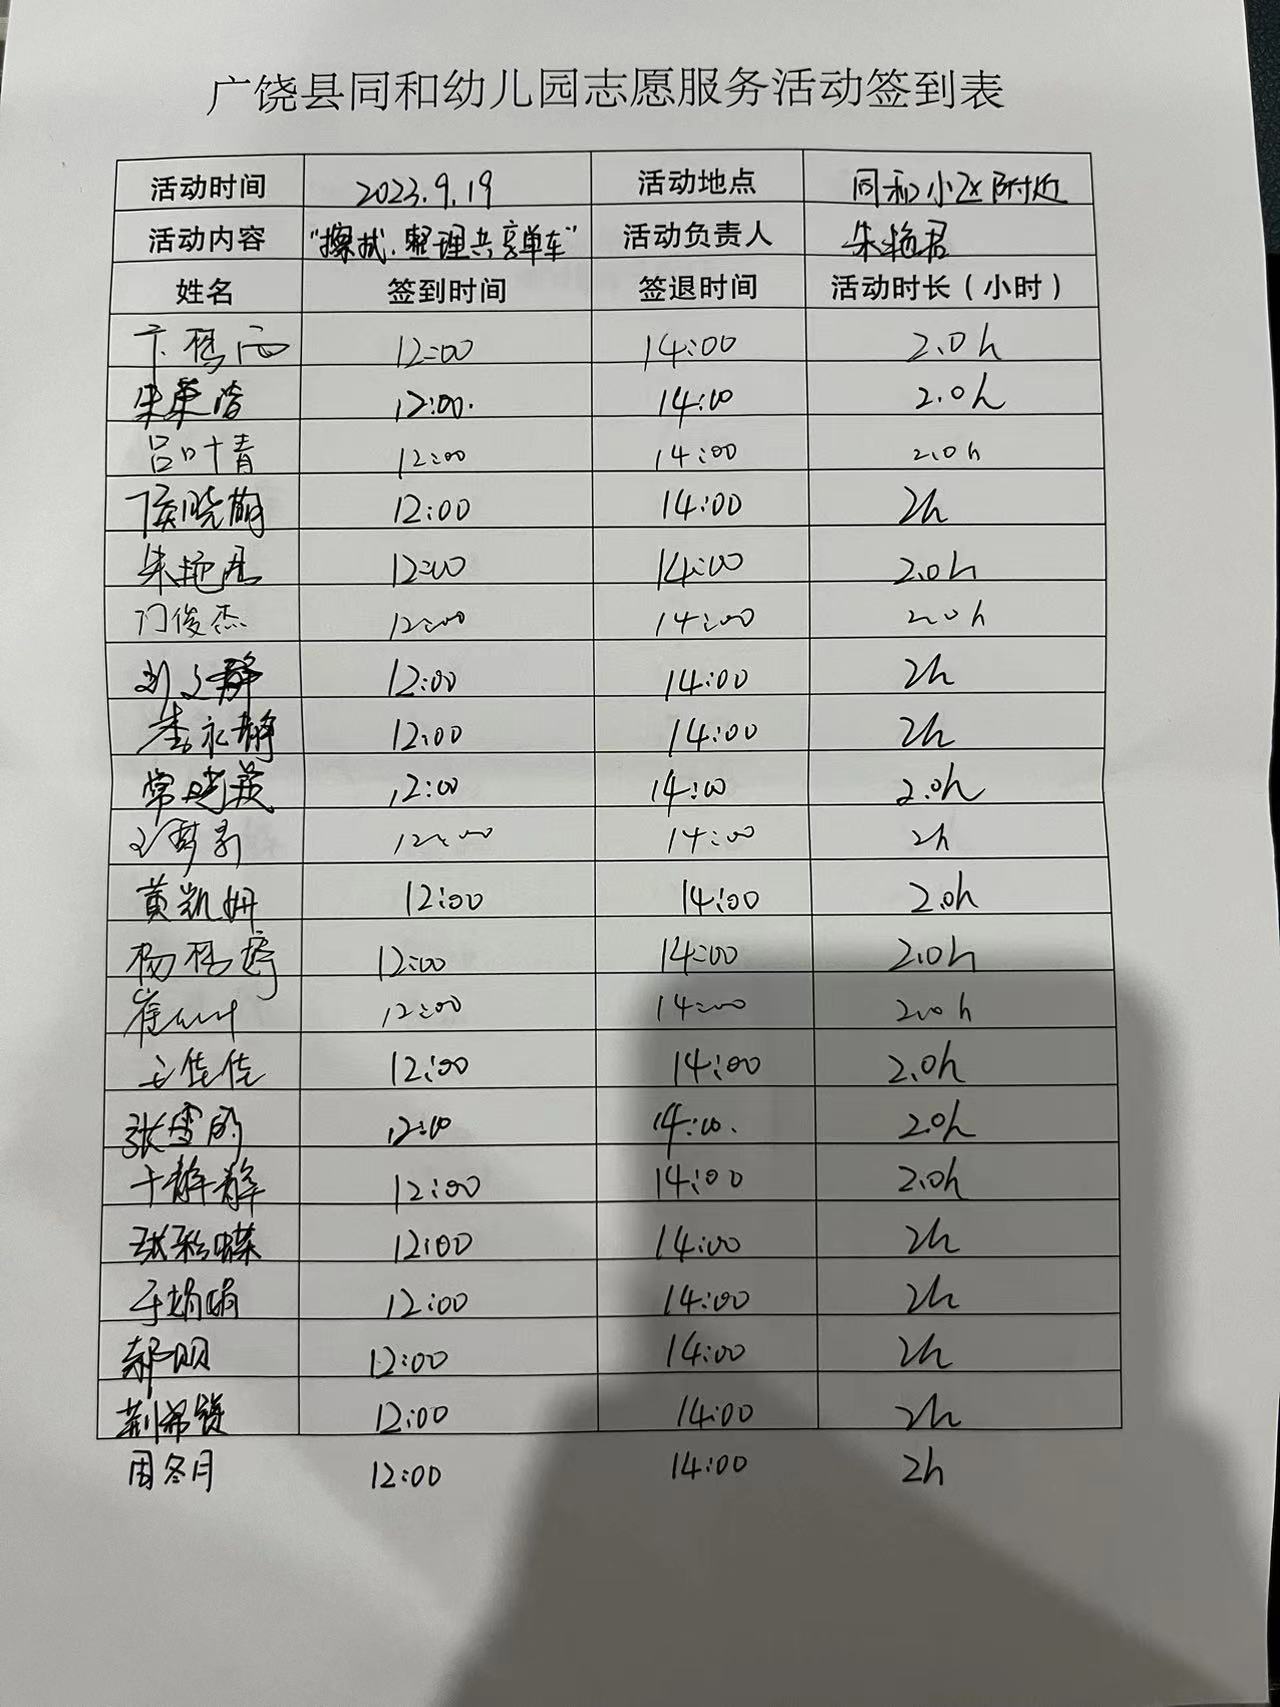 广饶县同和幼儿园志愿服务活动签到表
活动时间 2023.9.19 活动地点 同和小区附近
活动内容 "擦拭、整理共享单车" 活动负责人 朱艳君
姓名 签到时间 签退时间 活动时长（小时）
12:00 14:00 2.0h
朱 12:00. 14:00 2.0h
吕叶青 12:00 14:00 2.0h
侯晓萌 12:00 14:00 2h
朱艳君 12:00 14:00 2.0h
门俊杰 12:00 14:00 2.0h
刘文静 12:00 14:00 2h
李永静 12:00 14:00 2h
常晓英 12:00 14:00 2.0h
12:00 14:00 2h
黄凯妍 12:00 14:00 2.0h
杨 12:00 14:00 2.0h
崔 12:00 14:00 2.0h
王佳佳 12:00 14:00 2.0h
张雪 12:00 14:00. 2.0h
于静静 12:00 14:00 2.0h
张彩蝶 12:00 14:00 2h
于娟娟 12:00 14:00 2h
郝明 12:00 14:00 2h
荆希 12:00 14:00 2h
周冬月 12:00 14:00 2h